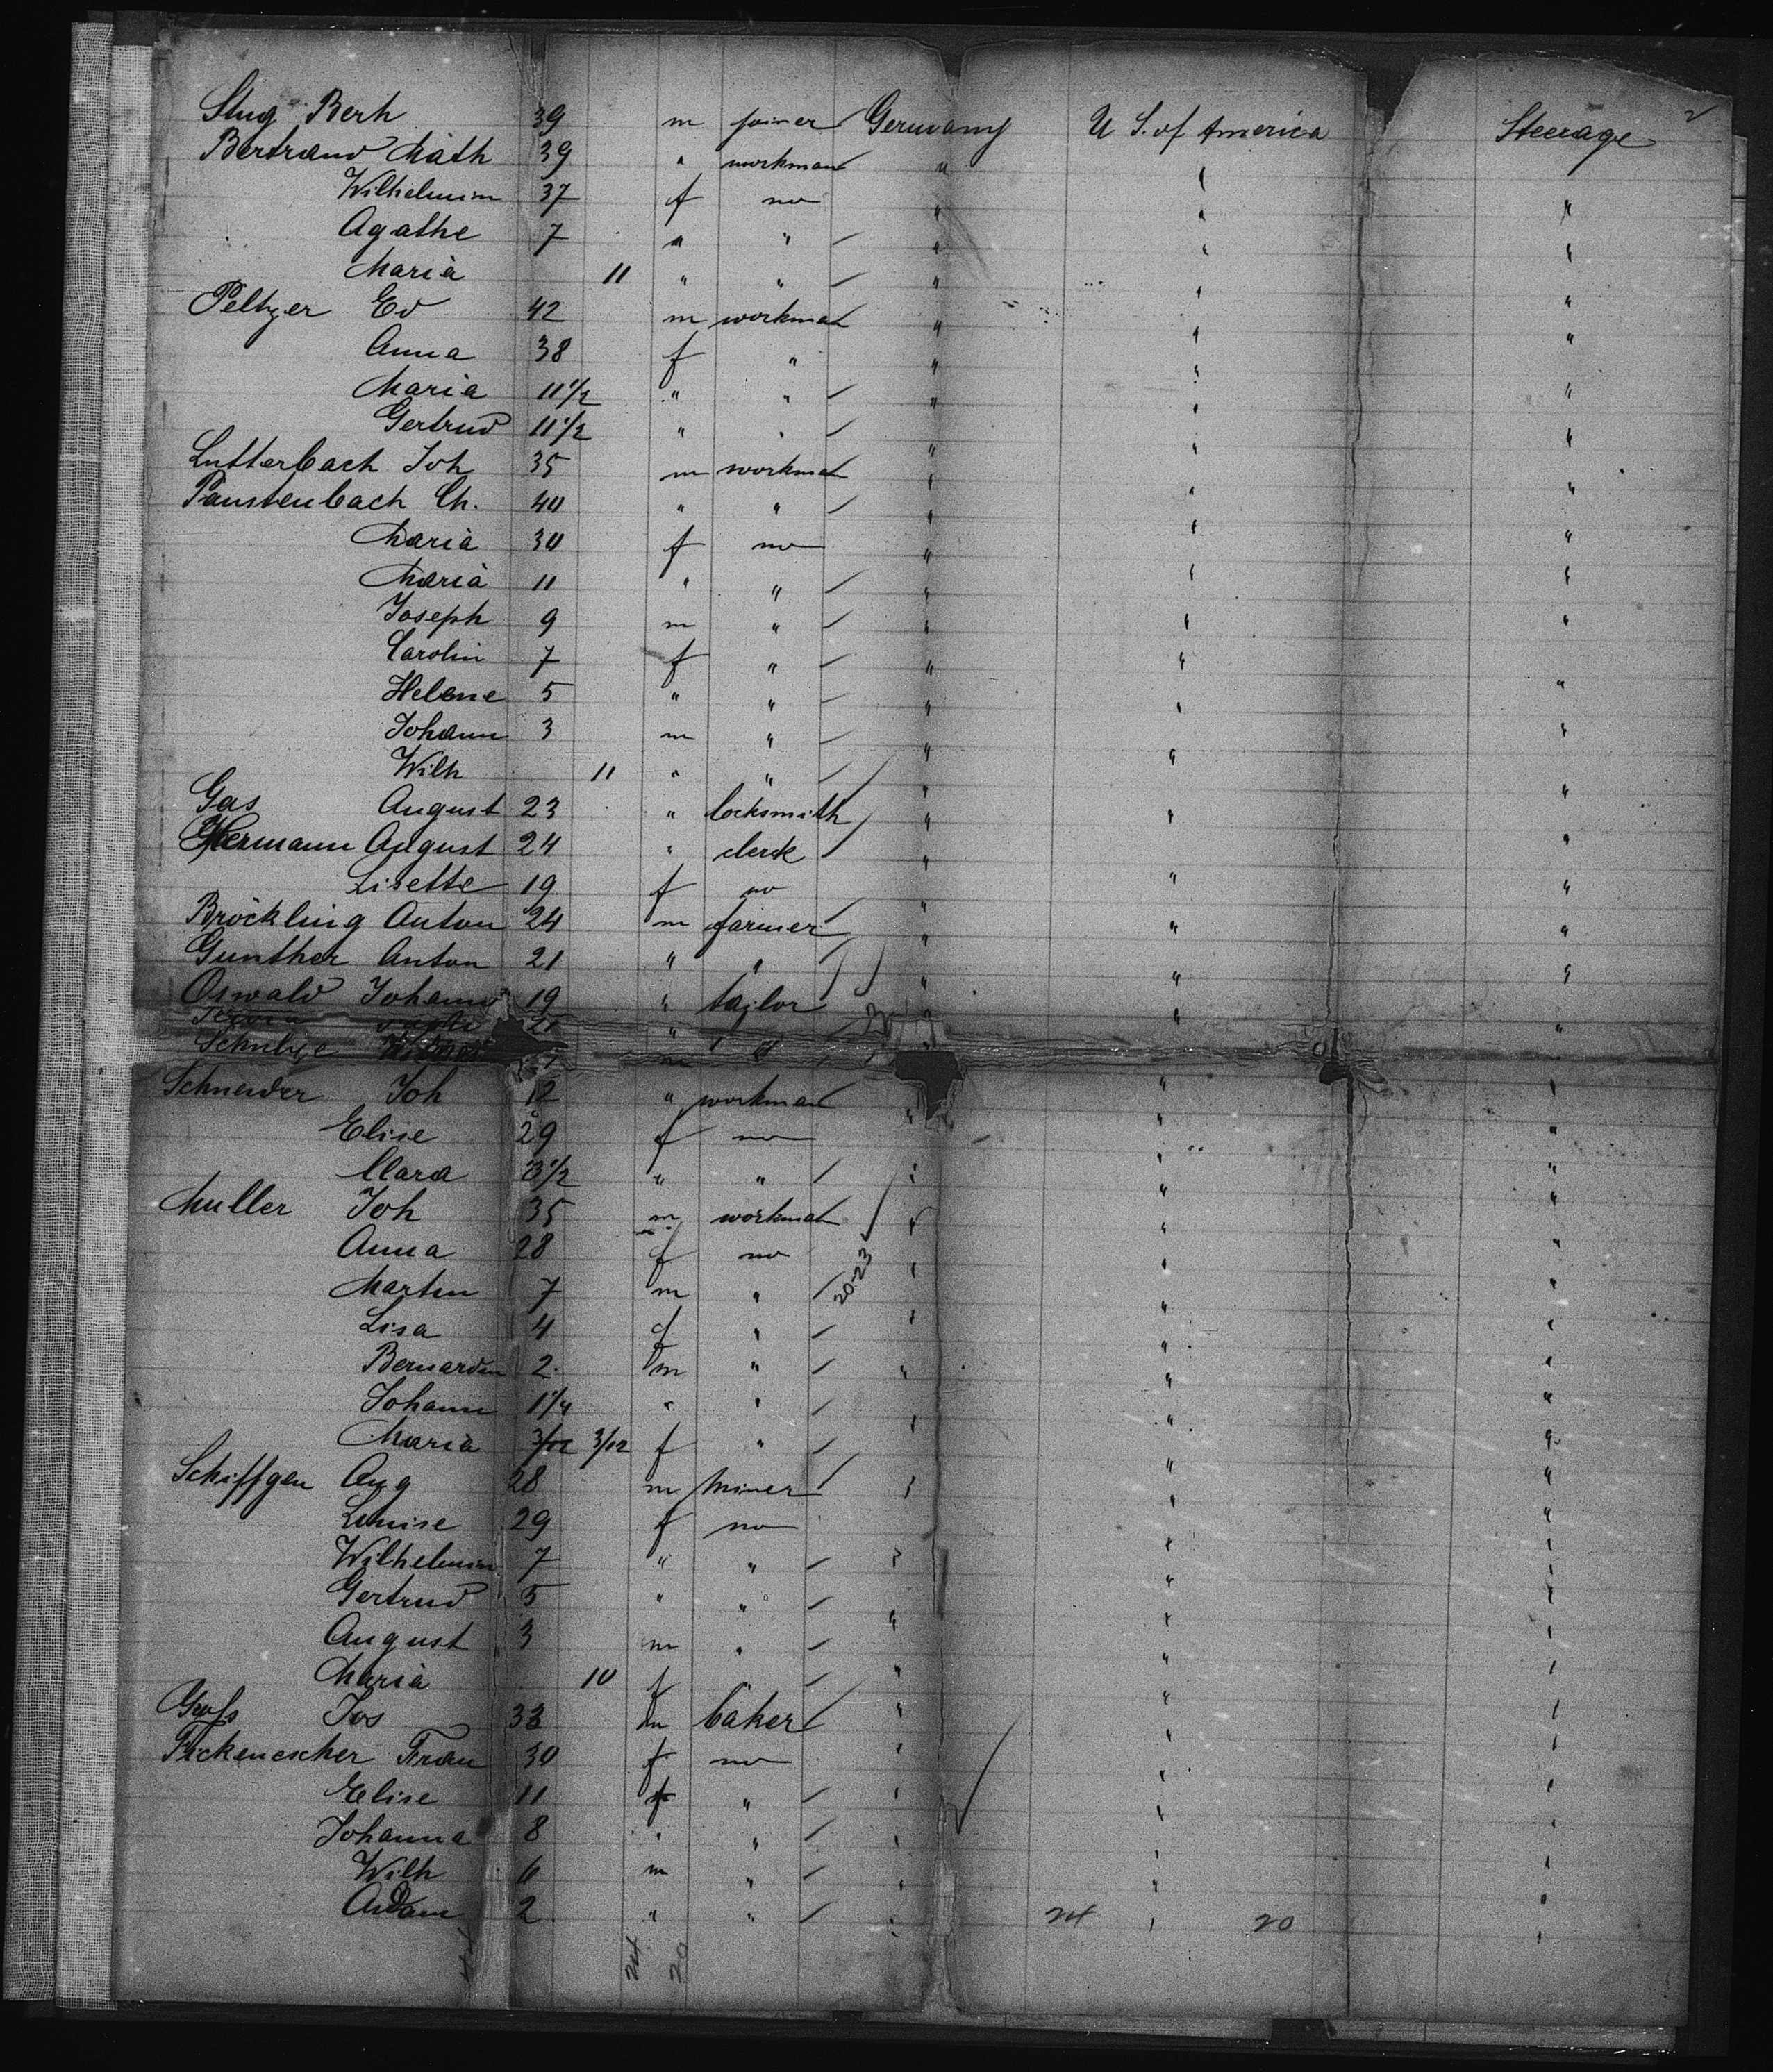 2
Stug Berh 39 m joiner / Germany U S. of America Steerage
Bertrand Math 39 " workman " " "
Wilhelmin 37 f no " " "
Agathe 7 " " / " " "
Maria 11 " " / " " "
Peltzer Ed 42 m workman " " "
Anna 38 f " " " "
Maria 11 1/2 " " / " " "
Gertrud 11 1/2 " " / " " "
Lutterbach Joh 35 m workman " " "
Paustenbach Ch. 40 " " / " " "
Maria 30 f no " " "
Maria 11 " " / " " "
Joseph 9 m " / " " "
Carolin 7 f " / " " "
Helene 5 " " / " " "
Johann 3 m " / " " "
Wilh 11 " " / " " "
Gas August 23 " locksmith / " " "
Hermann August 24 " clerk / " " "
Lisette 19 f no " " "
Bröckling Anton 24 m farmer / " " "
Gunther Anton 21 " " / " " "
Oswald Johann 19 " tailor / " " "
21 "
Schulze m " /
Schneider Joh 12 " workman " " "
Elise 29 f no " "
Clara 3 1/2 " " / " " "
Muller Joh 35 m workman " " "
Anna 28 f no " " "
Martin 7 m " / 20-23 " " "
Lisa 4 f " / " "
Bernardin 2 m " / " " "
Johann 1 1/4 " " / " " "
Maria 3/12 3/12 f " / " "
Schiffgen Aug 28 m miner / " " "
Louise 29 f no " "
Wilhelmin 7 " " / " " "
Gertrud 5 " " / " " "
August 3 m " / " " "
Maria 10 f / " " "
Grofs Jos 33 m baker / " " "
Fickenescher Frau 30 f no " " "
Elise 11 f " / " " "
Johanna 8 " " / " " "
Wilh 6 m " / " " "
Adam 2 " " / " 24 " 20 "
24 20